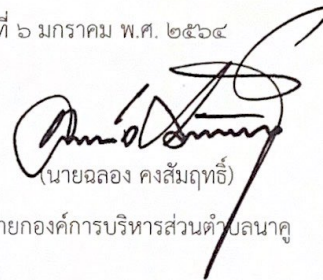 ที่ ๖ มกราคม พ.ศ. ๒๕๖๔
(นายฉลอง คงสัมฤทธิ์)
ายกองค์การบริหารส่วนตำบลนาคู